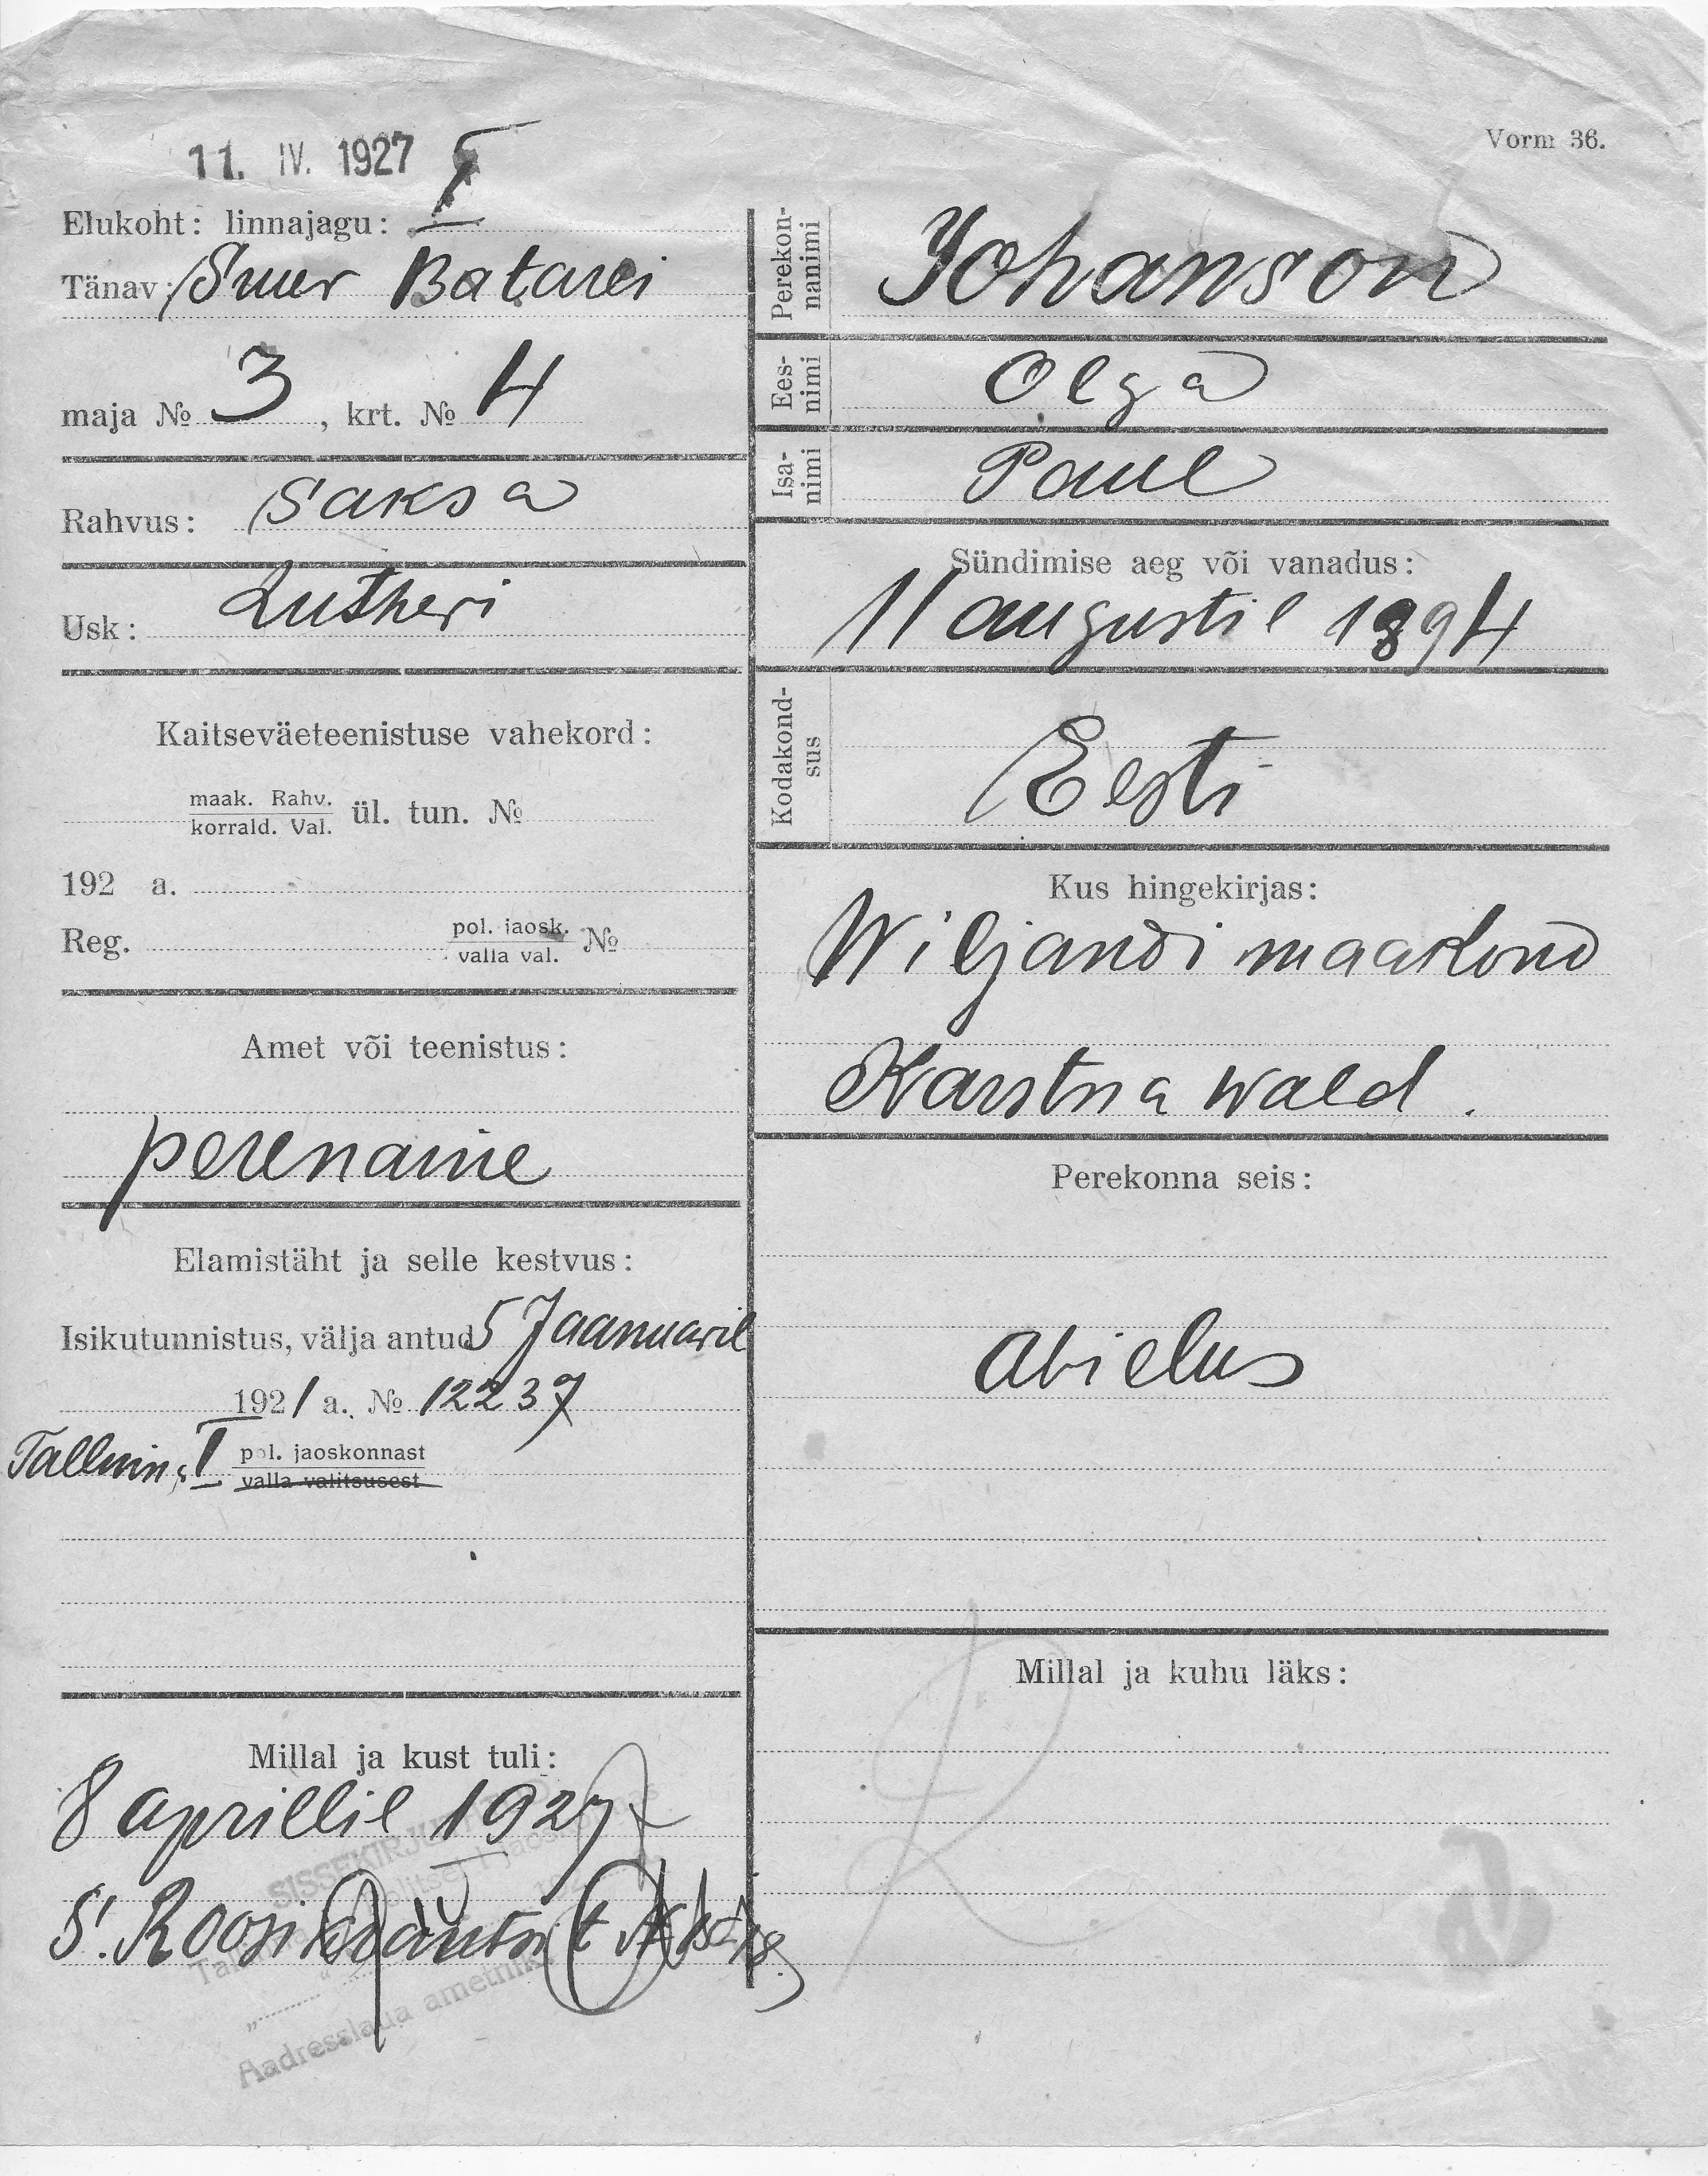 11. IV. 1927
Vorm 36.
Elukoht: linnajagu: I
Tänav: Suur Batarei
maja № 3, krt. № 4
Rahvus: Saksa
Usk: Lutheri
Kaitseväeteenistuse vahekord:
maak. Rahv.
korrald. Val. ül. tun. №
192 a.
Reg. pol. jaosk.
valla val. №
Amet või teenistus:
perenaine
Elamistäht ja selle kestvus:
Isikutunnistus, välja antud 5 Jaanuaril
1921 a. № 12237
Tallinna I pol. jaoskonnast
valla valitsusest
Millal ja kust tuli:
8 aprillil 1927
S. Roosikrantsi t.
SISSEKIRJUT
Aadresslaua ametnik
Perekonnanimi
Johanson
Eesnimi
Olga
Isanimi
Paul
Sündimise aeg või vanadus:
11 augustil 1894
Kodakondsus
Eesti
Kus hingekirjas:
Wiljandi maakond
Karstna wald.
Perekonna seis:
abielus
Millal ja kuhu läks: